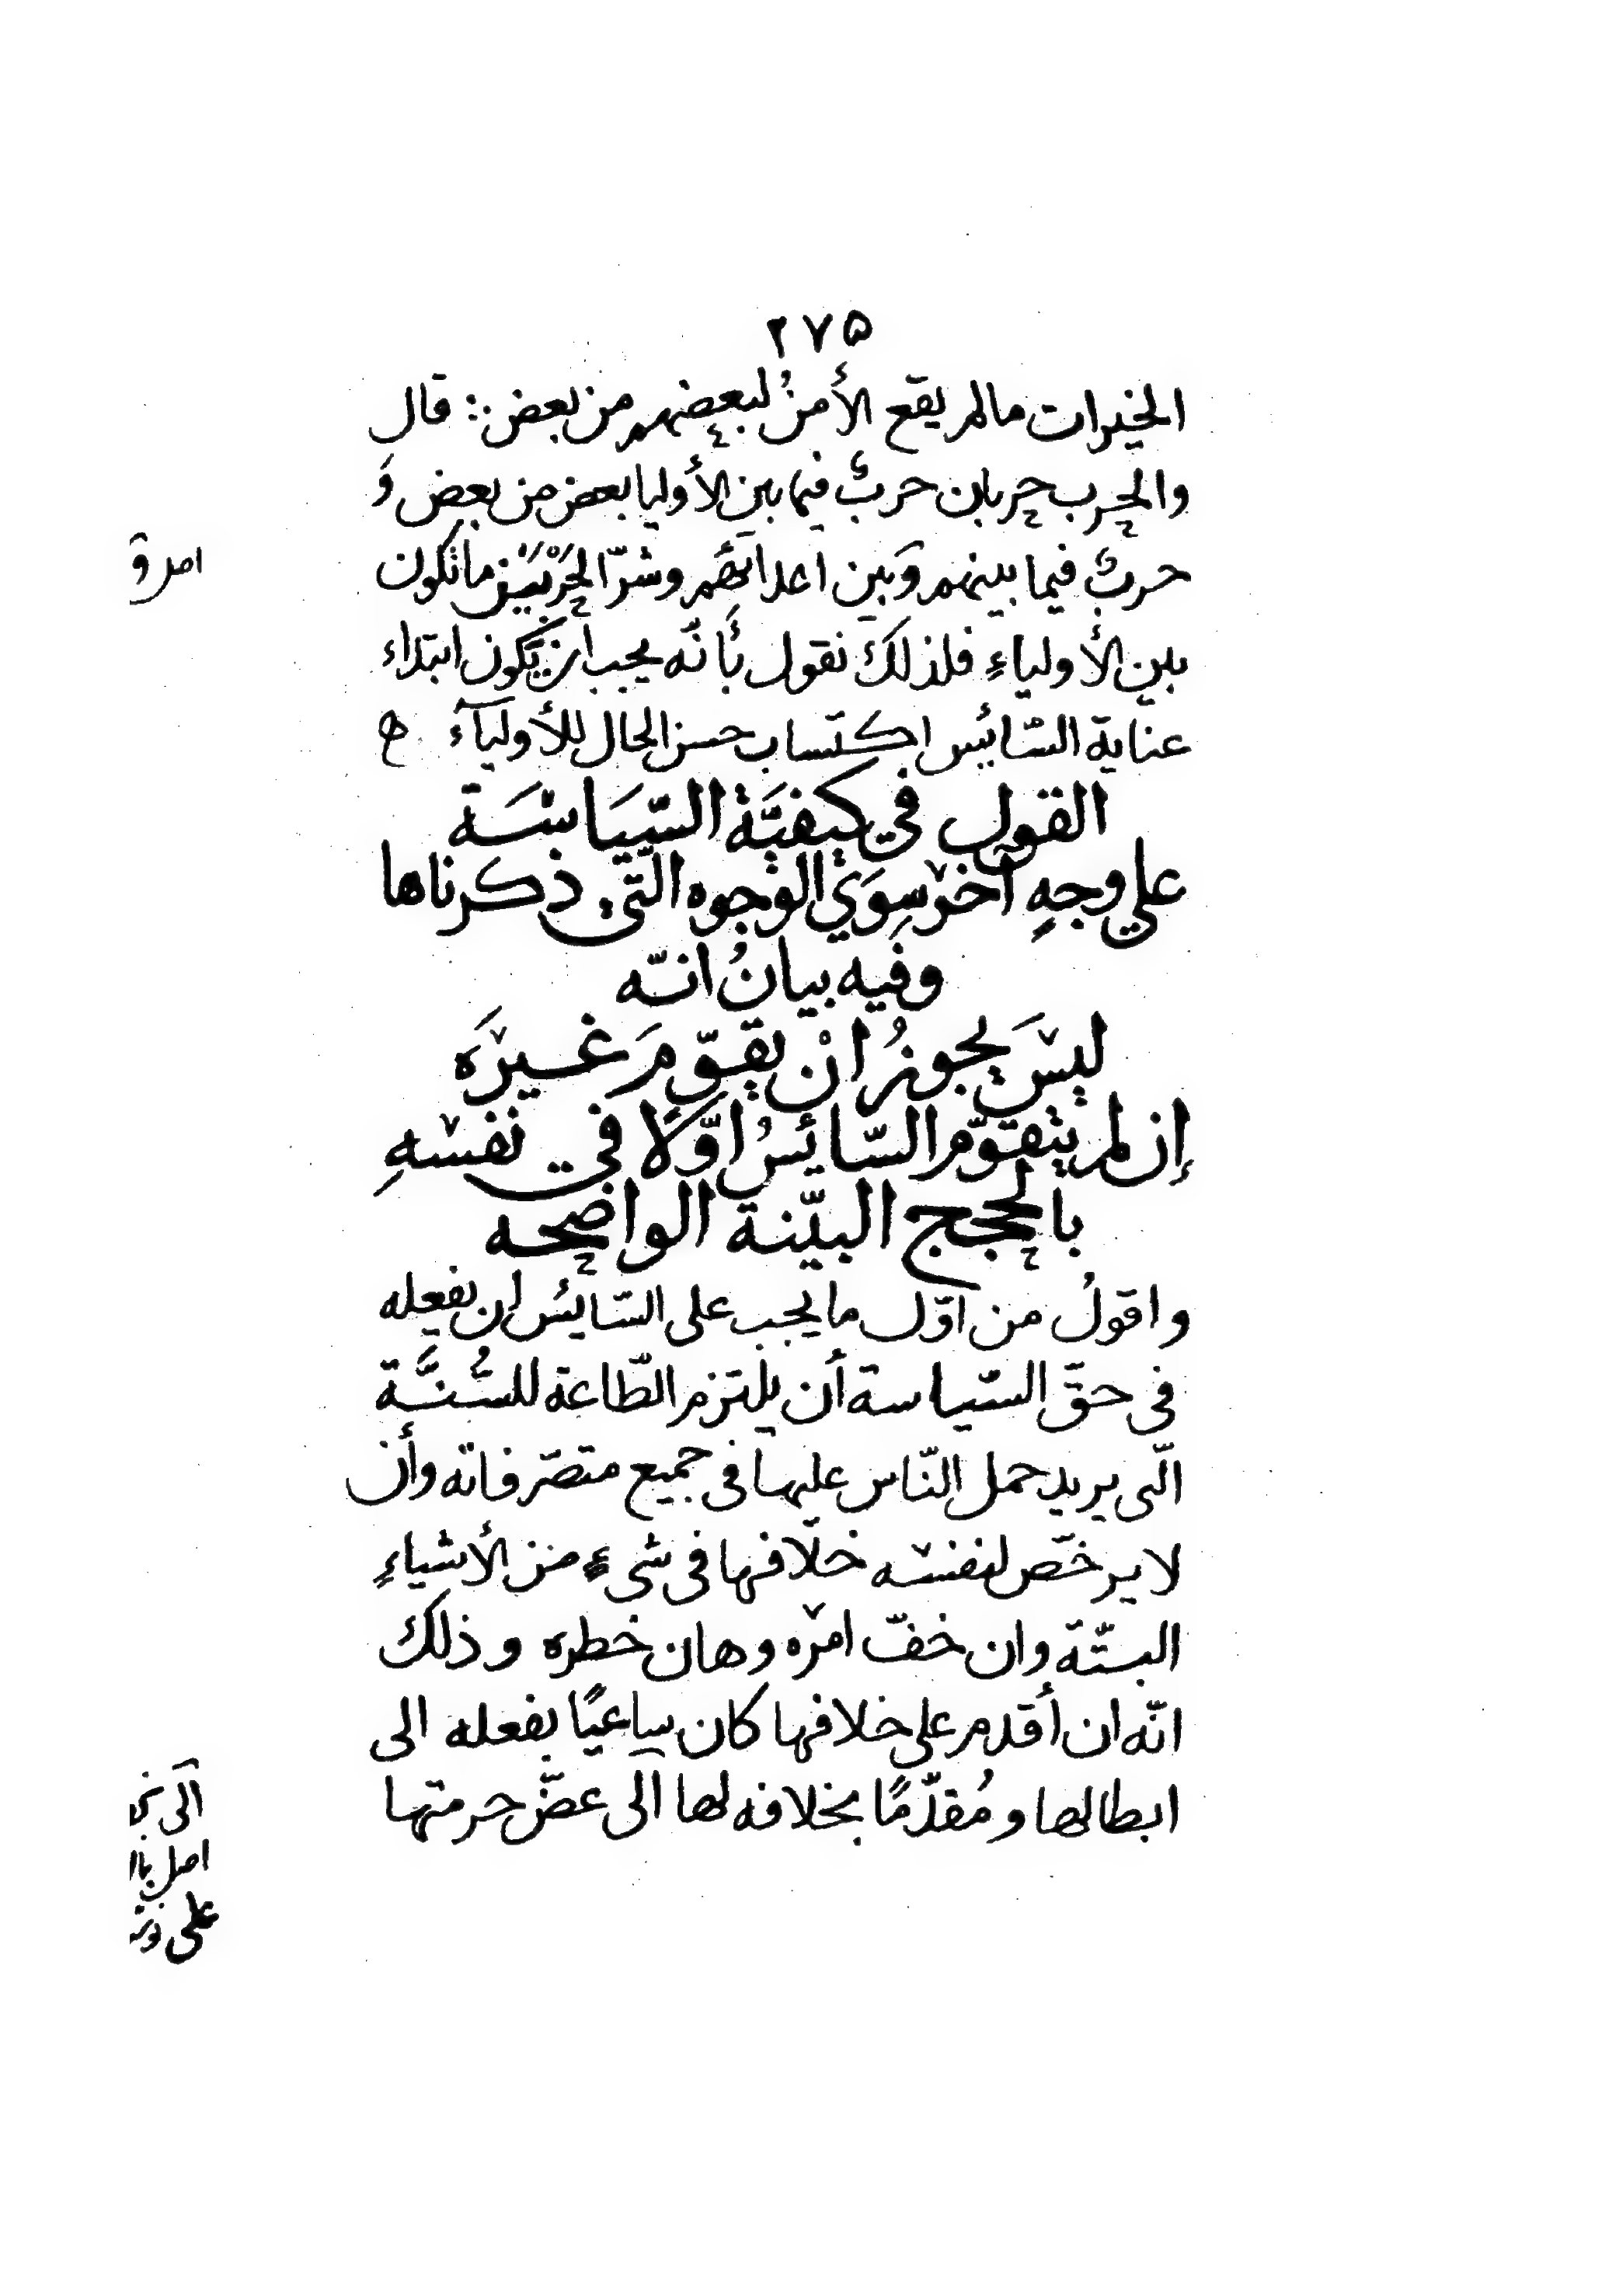 ٢٧٥
الخيرات مالم يقع الأمنُ لبعضهم من بعض ∴ قال
والحرب حربان حربٌ فيما بين الأوليا بعض من بعض وَ
حربٌ فيما بينهم وَبين اعدائهم وشرّ الحَرْبَيْنِ ما تكون
بين الأولياءِ فلذلك نقول بأنّه يجب ان يكون ابتداء
عناية السّائس اكتساب حسن الحال للأوليآء ه
القول في كيفيَّة السّيَاسَة
علي وجهٍ آخر سِوَي الوجوه الّتي ذكرناها
وفيه بيانُ انّه
ليسَ يجوزُ انْ يقوّمَ غيرَه
إن لم يتقوّم السّائسُ اوّلًا في نفسهِ
بالحجج البيّنة الواضحه
واقولُ من اوّل ما يجب على السّايئس ان يفعله
في حقّ السّياسة أن يلتزم الطّاعة للسُّنَّة
الّتى يريد حمل النّاس عليها فى جميع متصرّفاته وأن
لا يرخّص لنفسه خلافها فى شىءٍ من الأشياءِ
البتّة وان خفّ امره وهان خطره وذلك
انّه ان أقدم على خلافها كان ساعيًا بفعله الى
ابطالها ومُقدّمًا بخلافه لها الى غضّ حرمتها